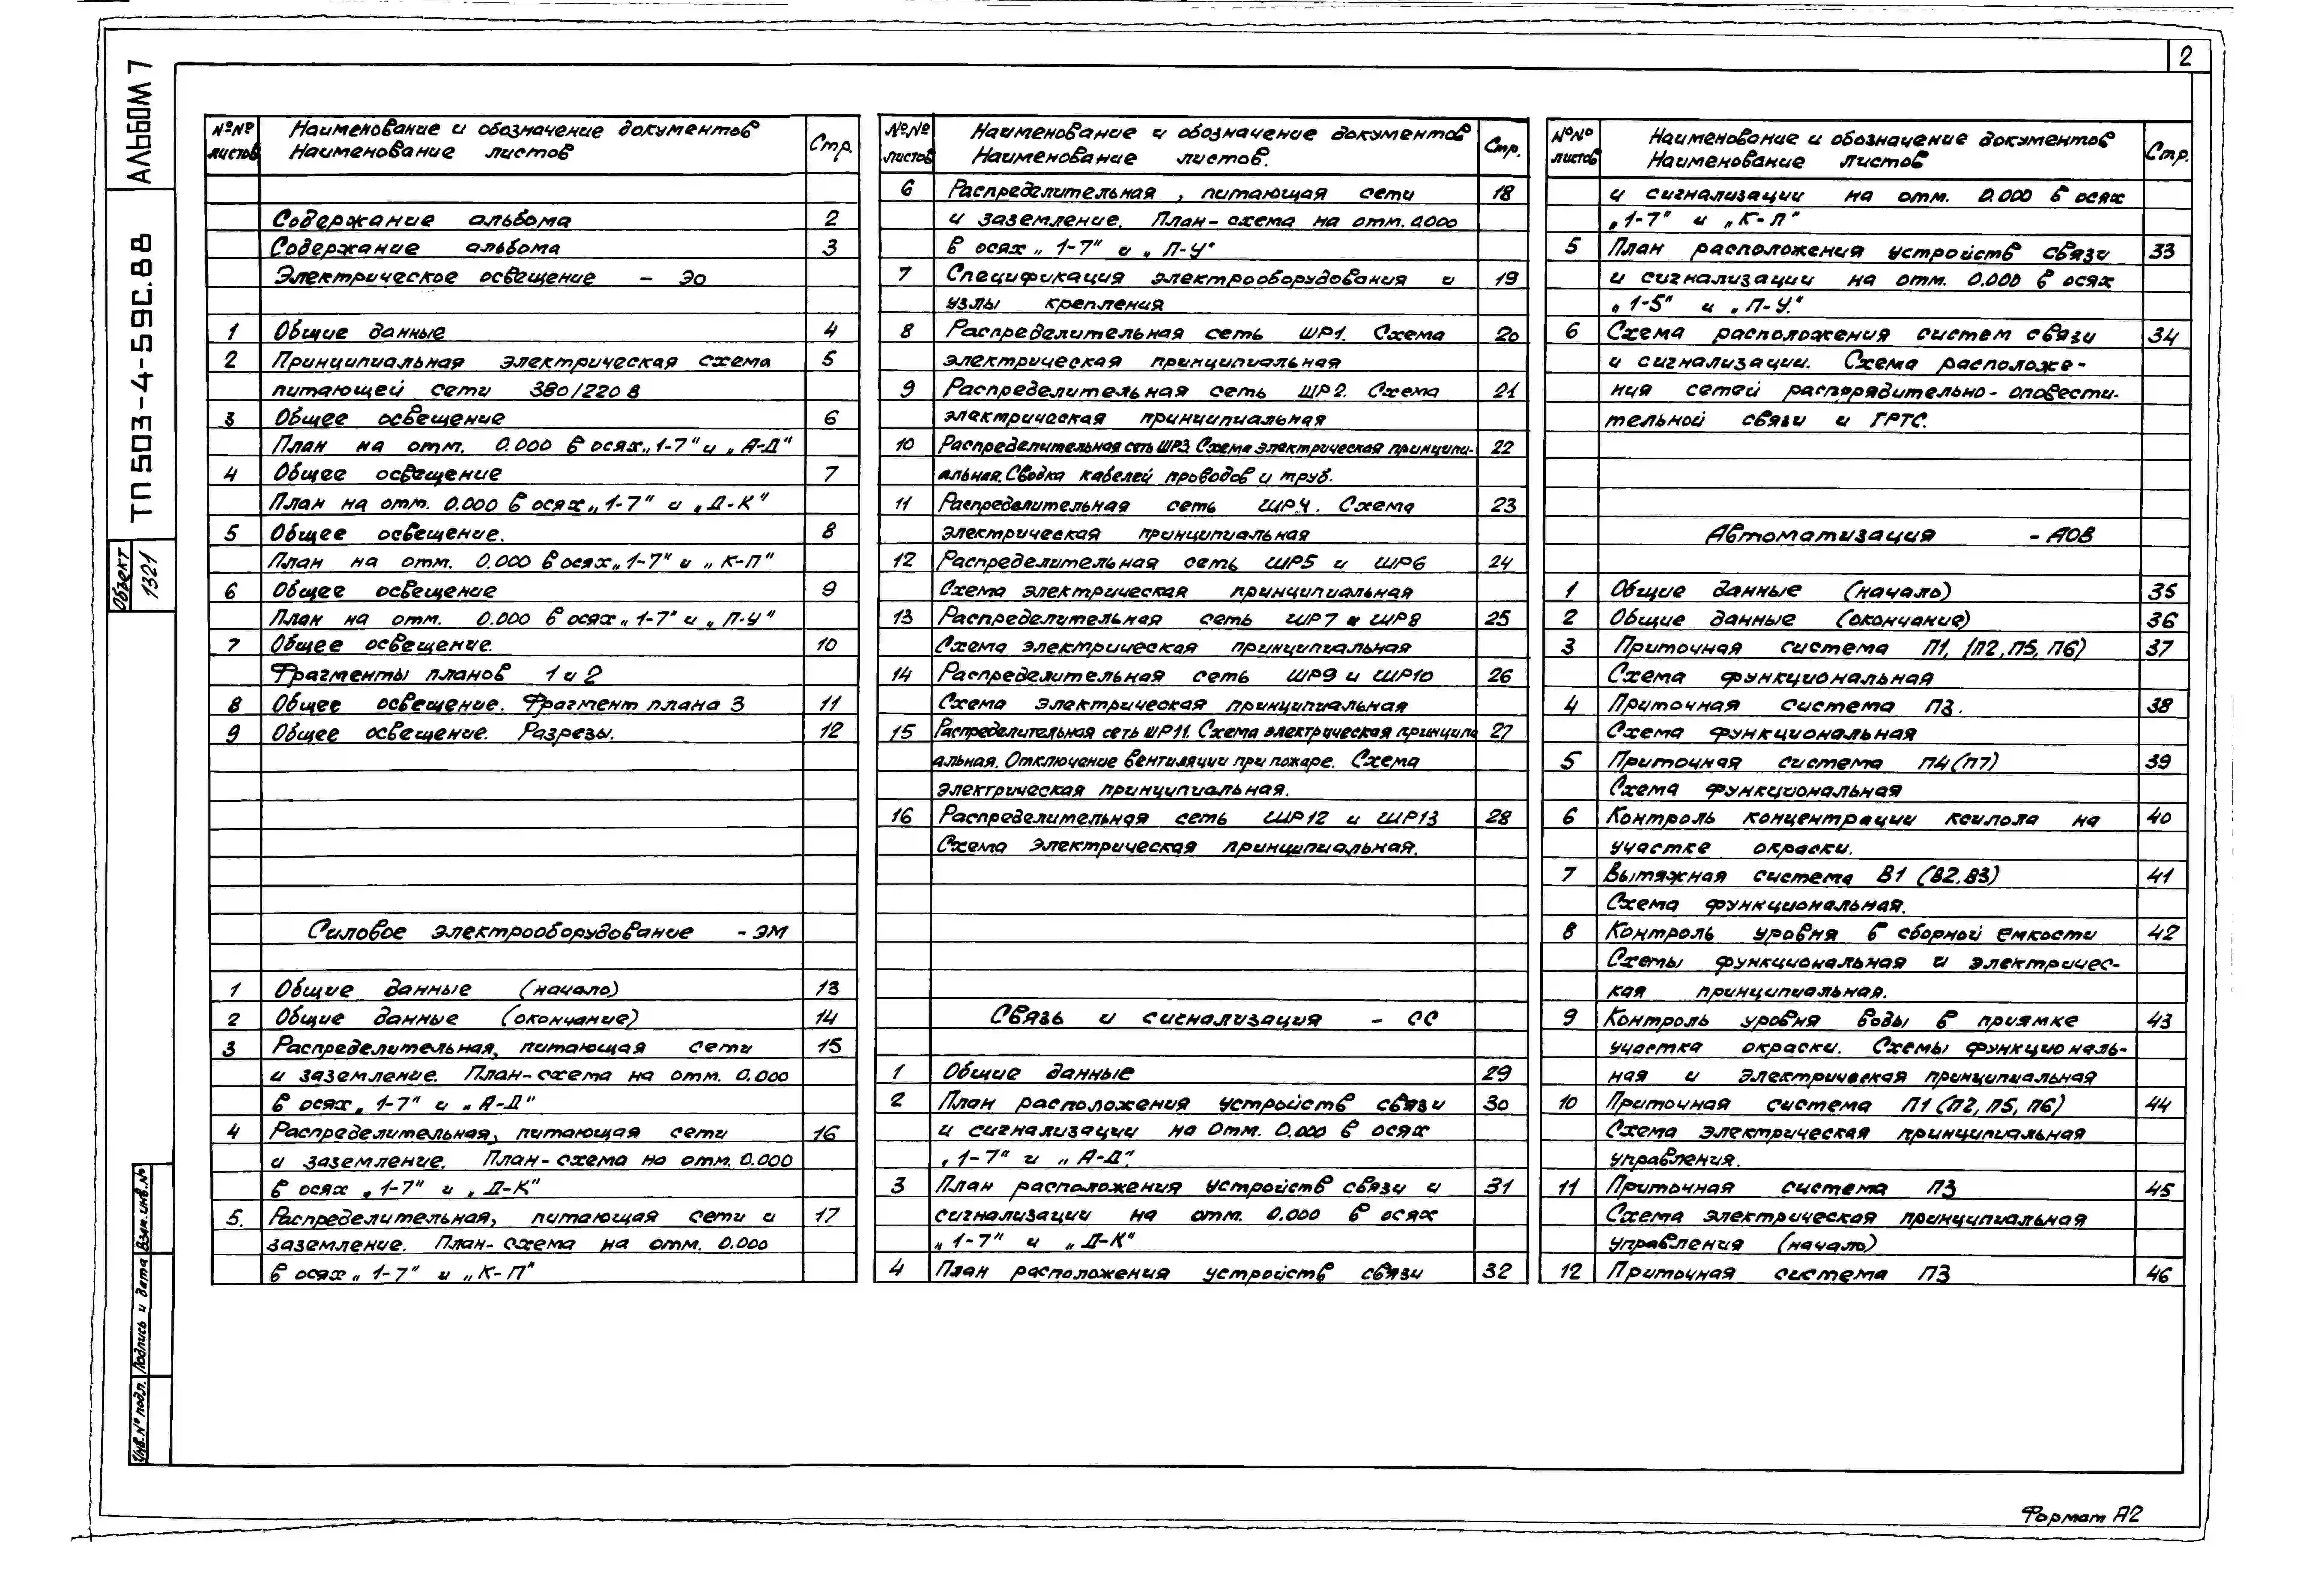 2
АЛЬБОМ 7
ТП 503-4-59С.88
Объект 1321
Взам.инв.№
Подпись и дата
Инв.№ подл.
№№ листов Наименование и обозначение документов Наименование листов Стр.
Содержание альбома 2
Содержание альбома 3
Электрическое освещение - ЭО
1 Общие данные 4
2 Принципиальная электрическая схема 5
питающей сети 380/220 В
3 Общее освещение 6
План на отм. 0.000 в осях „1-7" и „А-Д"
4 Общее освещение 7
План на отм. 0.000 в осях „1-7" и „Д-К"
5 Общее освещение. 8
План на отм. 0.000 в осях „1-7" и „К-П"
6 Общее освещение 9
План на отм. 0.000 в осях „1-7" и „П-У"
7 Общее освещение. 10
Фрагменты планов 1 и 2
8 Общее освещение. Фрагмент плана 3 11
9 Общее освещение. Разрезы. 12
Силовое электрооборудование - ЭМ
1 Общие данные (начало) 13
2 Общие данные (окончание) 14
3 Распределительная, питающая сети 15
и заземление. План-схема на отм. 0.000
в осях „1-7" и „А-Д"
4 Распределительная, питающая сети 16
и заземление. План-схема на отм. 0.000
в осях „1-7" и „Д-К"
5. Распределительная, питающая сети и 17
заземление. План-схема на отм. 0.000
в осях „1-7" и „К-П"
№№ листов Наименование и обозначение документов Наименование листов. Стр.
6 Распределительная, питающая сети 18
и заземление. План-схема на отм. 0.000
в осях „1-7" и „П-У"
7 Спецификация электрооборудования и 19
узлы крепления
8 Распределительная сеть ШР1. Схема 20
электрическая принципиальная
9 Распределительная сеть ШР2. Схема 21
электрическая принципиальная
10 Распределительная сеть ШР3. Схема электрическая принципи- 22
альная. Сводка кабелей проводов и труб.
11 Распределительная сеть ШР4. Схема 23
электрическая принципиальная
12 Распределительная сеть ШР5 и ШР6 24
Схема электрическая принципиальная
13 Распределительная сеть ШР7 и ШР8 25
Схема электрическая принципиальная
14 Распределительная сеть ШР9 и ШР10 26
Схема электрическая принципиальная
15 Распределительная сеть ШР11. Схема электрическая принципи 27
альная. Отключение вентиляции при пожаре. Схема
электрическая принципиальная.
16 Распределительная сеть ШР12 и ШР13 28
Схема электрическая принципиальная.
Связь и сигнализация - СС
1 Общие данные 29
2 План расположения устройств связи 30
и сигнализации на отм. 0.000 в осях
„1-7" и „А-Д".
3 План расположения устройств связи и 31
сигнализации на отм. 0.000 в осях
„1-7" и „Д-К"
4 План расположения устройств связи 32
№№ листов Наименование и обозначение документов Наименование листов Стр.
и сигнализации на отм. 0.000 в осях
„1-7" и „К-П"
5 План расположения устройств связи 33
и сигнализации на отм. 0.000 в осях
„1-5" и „П-У."
6 Схема расположения систем связи 34
и сигнализации. Схема расположе-
ния сетей распорядительно-оповести-
тельной связи и ГРТС.
Автоматизация - АОВ
1 Общие данные (начало) 35
2 Общие данные (окончание) 36
3 Приточная система П1, (П2, П5, П6) 37
Схема функциональная
4 Приточная система П3. 38
Схема функциональная
5 Приточная система П4(П7) 39
Схема функциональная
6 Контроль концентрации ксилола на 40
участке окраски.
7 Вытяжная система В1 (В2, В3) 41
Схема функциональная.
8 Контроль уровня в сборной емкости 42
Схемы функциональная и электричес-
кая принципиальная.
9 Контроль уровня воды в приямке 43
участка окраски. Схемы функциональ-
ная и электрическая принципиальная
10 Приточная система П1 (П2, П5, П6) 44
Схема электрическая принципиальная
управления.
11 Приточная система П3 45
Схема электрическая принципиальная
управления (начало)
12 Приточная система П3 46
Формат А2